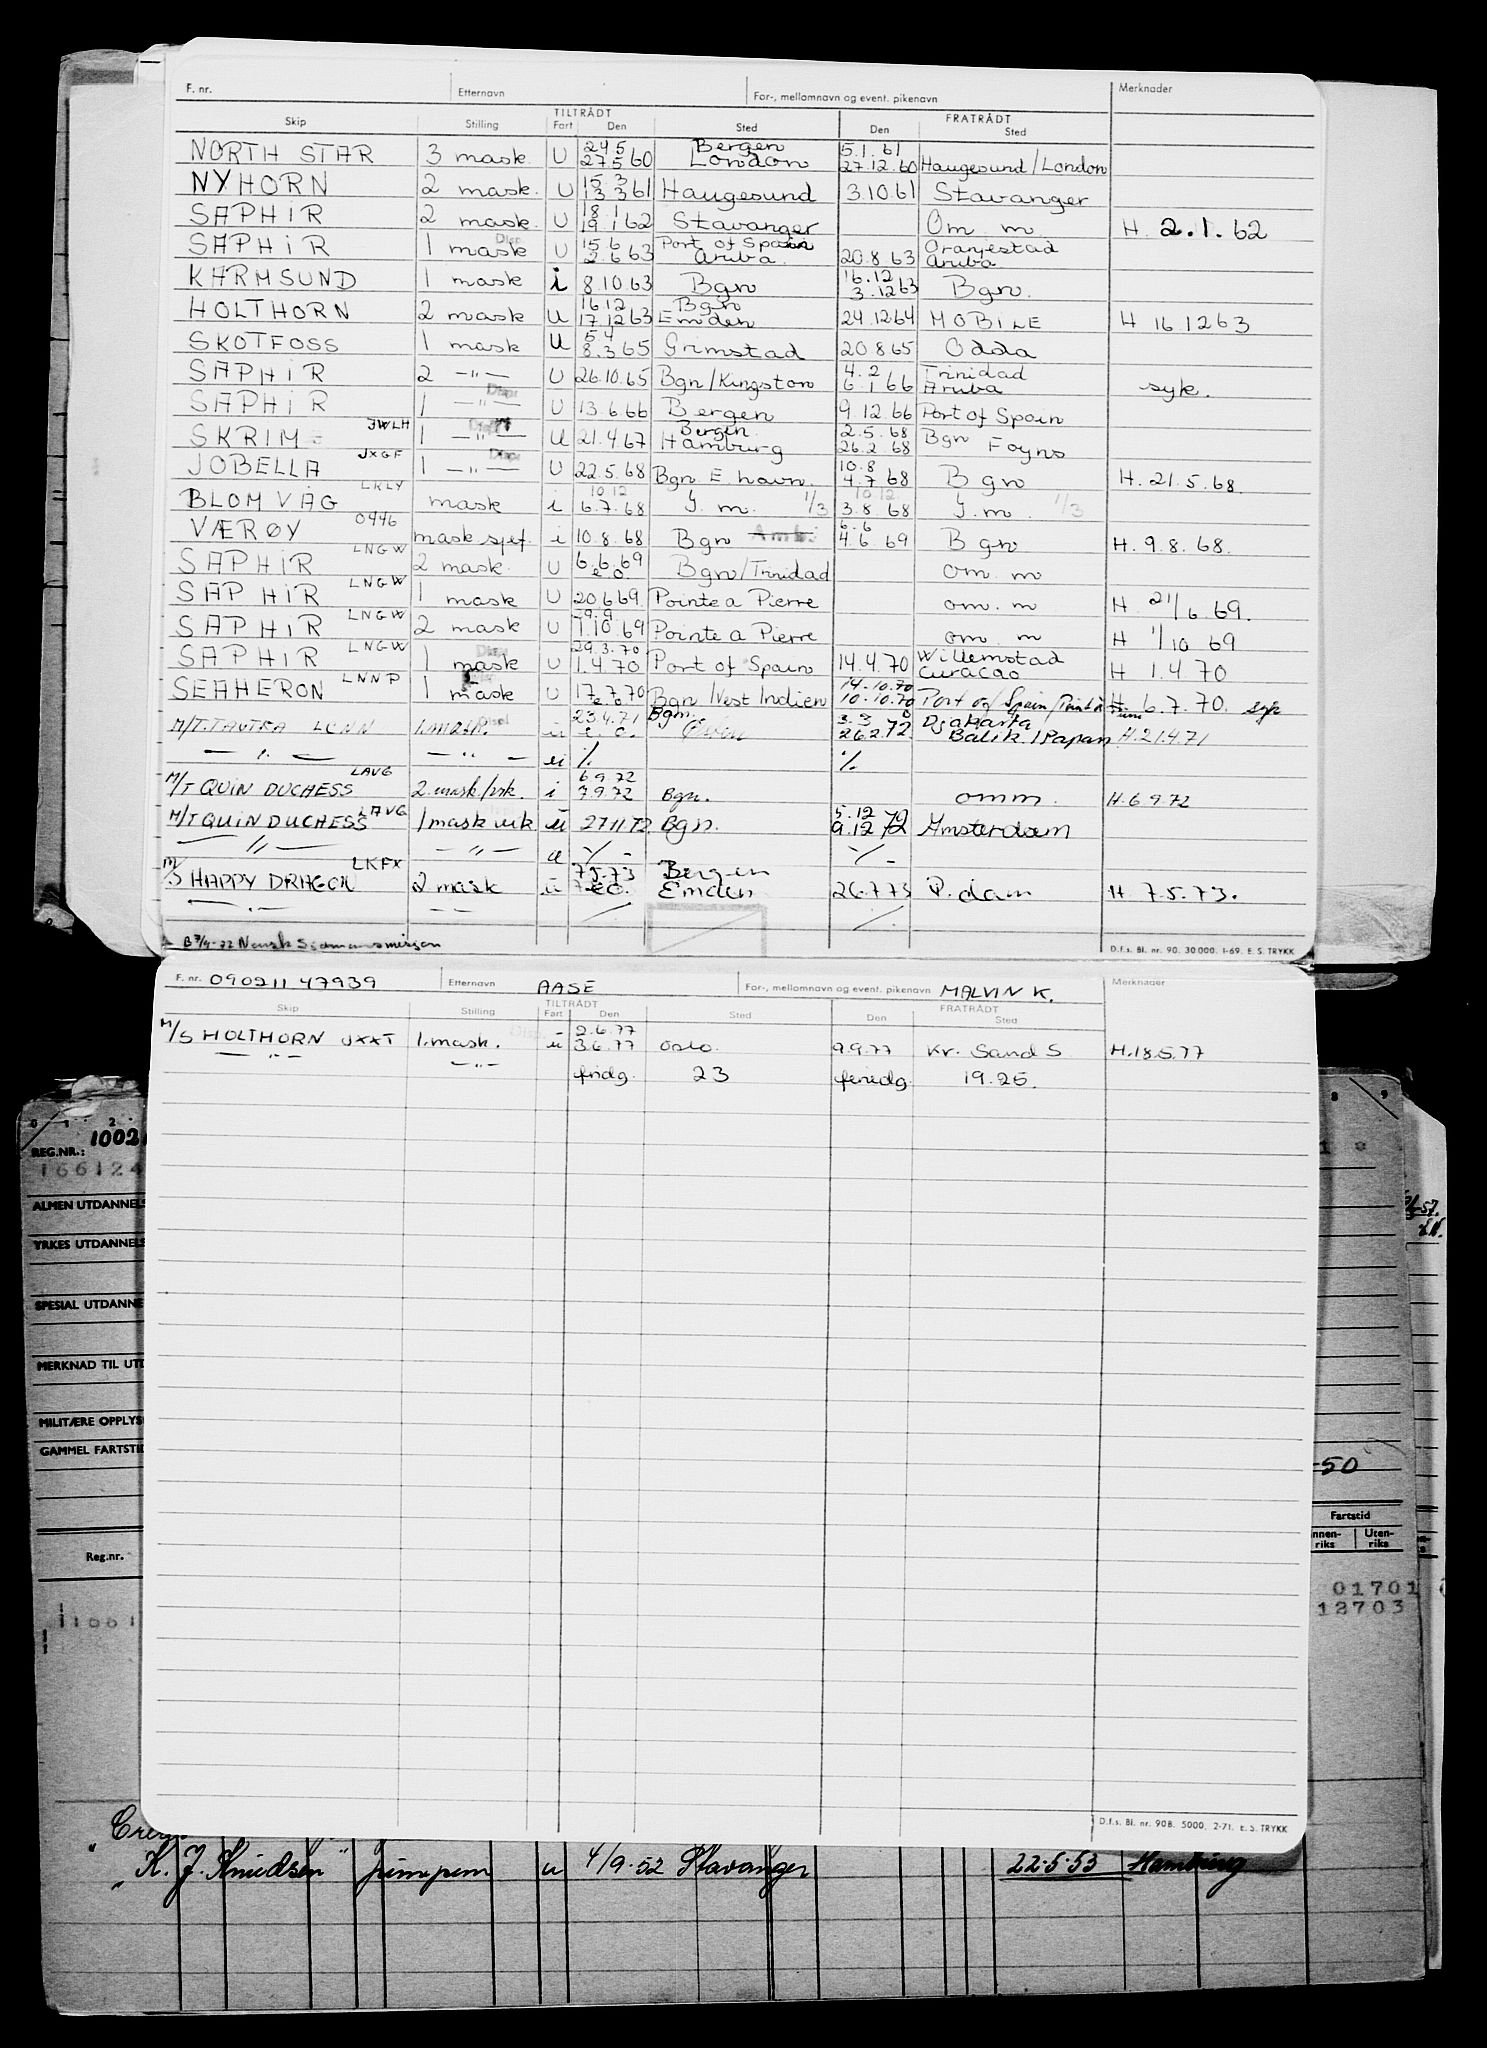 F. nr. Etternavn For-, mellomnavn og event. pikenavn Merknader
TILTRÅDT FRATRÅDT
Skip Stilling Fart Den Sted Den Sted
24.5 Bergen 5.1.61
NORTH STAR 3 mask U 27.5 60 London 27.12.60 Haugesund/London
15 3
NYHORN 2 mask. U 13 3 61 Haugesund 3.10.61 Stavanger
18
SAPHIR 2 mask. U 19.1 62 Stavanger Om m. H. 2.1.62
15.6 Port of Spain Oranjestad
SAPHIR 1 mask U 2.6 63 Aruba. 20.8 63 Aruba
16.12
KARMSUND 1 mask i 8.10.63 Bgn 3.12 63 Bgn.
16.12 Bgn
HOLTHORN 2 mask U 17.12 63 Emden 24.12 64 MOBILE H 16.12 63
5 4
SKOTFOSS 1 mask U 8.3 65 Grimstad 20 8 65 Odda
4.2 Trinidad
SAPHIR 2 -"- U 26.10.65 Bgn/Kingston 6.1 66 Aruba syk.
SAPHIR 1 -"- U 13.6 66 Bergen 9.12.66 Port of Spain
Bergen 2.5.68
SKRIM JWLH 1 -"- U 21.4.67 Hamburg 26.2.68 Bgn Foyns
10.8
JOBELLA JXGF 1 -"- U 22.5.68 Bgn E. havn. 4.7 68 Bgn H. 21.5.68.
10.12 10.12.
BLOMVÅG LKLY mask i 6.7.68 J. m. 1/3 3.8 68 J. m. 1/3
6.6
VÆRØY 0446 mask sjef i 10.8.68 Bgn 4.6.69 Bgn H. 9.8.68.
SAPHIR LNGW 2 mask. U 6.6.69 e.o. Bgn/Trinidad om. m
SAPHIR LNGW 1 mask U 20.6 69. Pointe a Pierre om. m H 21/6.69.
29.9
SAPHIR LNGW 2 mask U 1.10 69 Pointe a Pierre om m H 1/10 69
29.3.70 Willemstad
SAPHIR LNGW 1 mask U 1.4.70 Port of Spain 14.4.70 Curacao H 1.4 70
14.10.70
SEAHERON LNNP 1 mask U 17.7.70 e.o. Bgn/Vest Indien 10.10.70 Port of Spain H. 6.7.70. syk
23.4.71 Bgn. 3.3 Djakarta
M/T. TANTRA LCNN 1. mask. u e.o. 26.2.72 Balik/Papan H. 21.4.71
-"- -"- u % %
6.9.72
M/T QUIN DUCHESS LAVG 2. mask/vik. i 7.9.72 Bgn. omm. H. 6 9.72
5.12 72
M/T QUIN DUCHESS LAVG 1 mask vik u 27 11 72 Bgn. 9.12 72 Amsterdam
-"- -"- u -/- -/-
7.5.73 Bergen
M/S HAPPY DRAGON LKFX 2 mask u e.o. Emden 26.7.73 P. dam H 7.5.73.
B 7/9-72 Norsk Sjømannsmisjon
D.f.s. Bl. nr. 90. 30 000. 1-69. E. S. TRYKK
F. nr. 090211 47939 Etternavn AASE For-, mellomnavn og event. pikenavn MALVIN K. Merknader
TILTRÅDT FRATRÅDT
Skip Stilling Fart Den Sted Den Sted
2.6.77
M/S HOLTHORN JXXT 1. mask. u 3.6.77 Oslo. 9.9.77 Kr. Sand S H. 18.5.77
-"- -"- fridg. 23 feriedg. 19.25.
D.f.s. Bl. nr. 90B. 5000. 2-71. E. S. TRYKK
0 1 2 8 9
REG.NR.: 1002
166124
ALMEN UTDANNELS
YRKES UTDANNELS
SPESIAL UTDANNE
MERKNAD TIL UTD
MILITÆRE OPPLYS
GAMMEL FARTSTID
-50
Fartstid
Reg.nr. nnen-riks Uten-riks
01701
12703
1661
"K. J. Knudsen" pumpem u 4/9.52 Stavanger 22.5.53 Hamburg